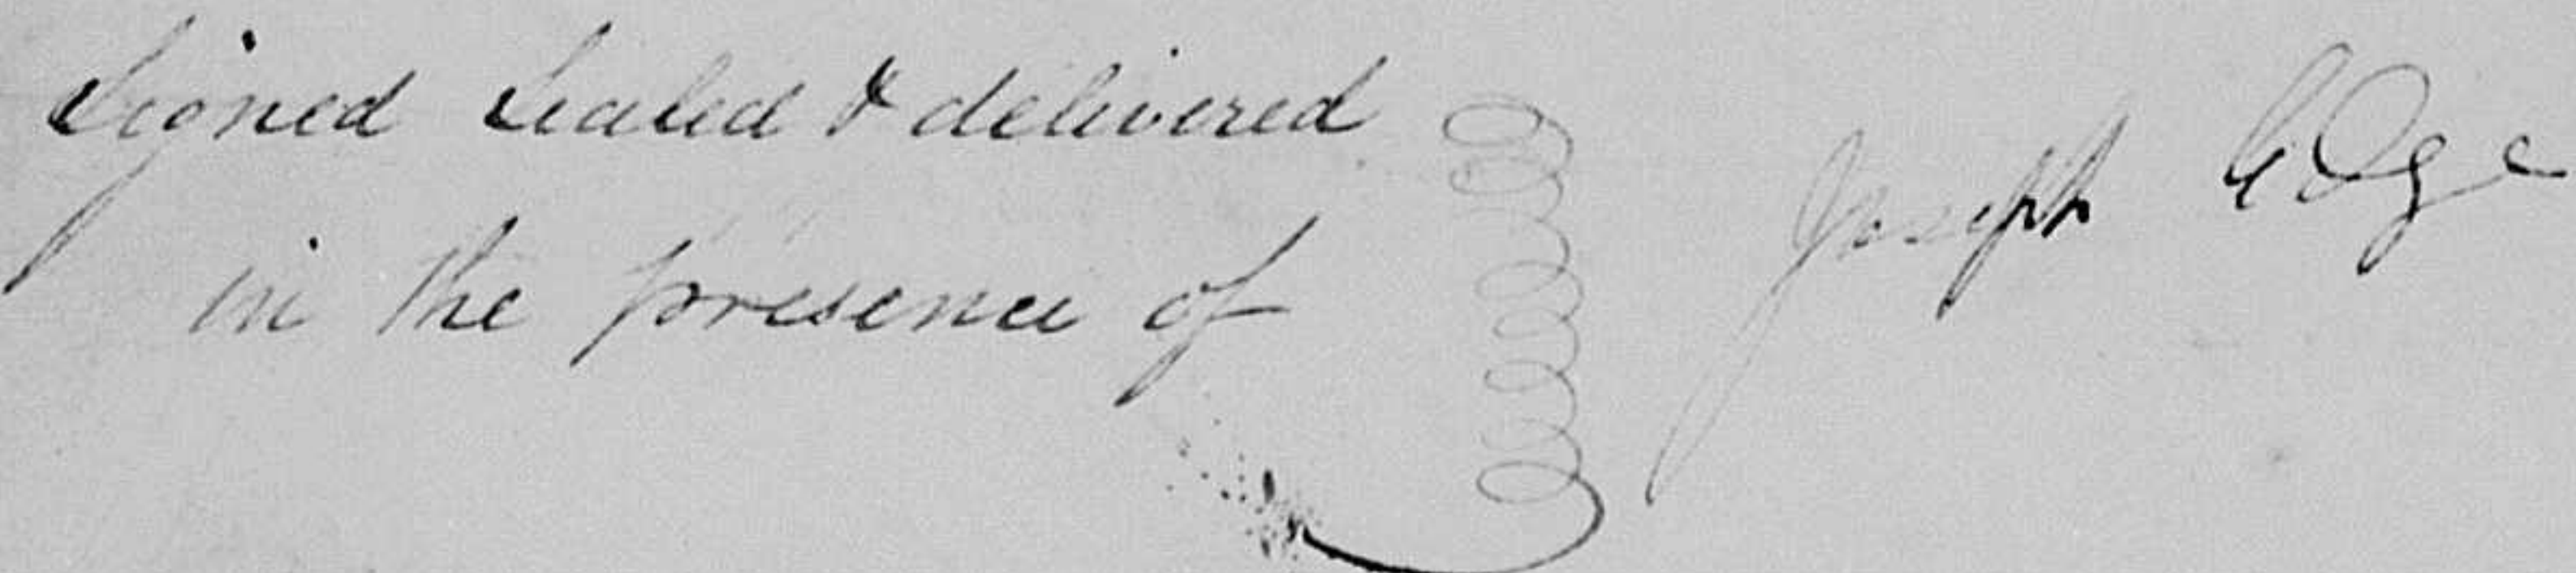 Signed Sealed & delivered
in the presence of
Joseph Edge